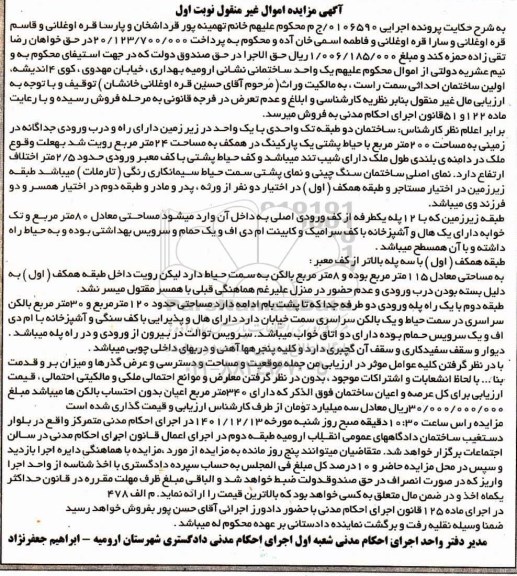 آگهی مزایده اموال غیر منقول نوبت اول
به شرح حکایت پرونده اجرایی ۰۱۰۶۵۹۰/ج م محکوم علیهم خانم تهمینه پور قرداشخان و پارسا قره اوغلانی و قاسم
قره اوغلانی و سارا قره اوغلانی و فاطمه اسمی خان آده و محکوم به پرداخت ۲۰/۱۲۳/۷۰۰/۰۰۰ در حق خواهان رضا
تقی زاده حمزه کند و مبلغ ۱/۰۰۶/۱۸۵/۰۰۰ ریال حق الاجرا در حق صندوق دولت که در جهت استیفای محکوم به و
نیم عشریه دولتی از اموال محکوم علیهم یک واحد ساختمانی نشانی ارومیه بهداری ، خیابان مهدوی ، کوی ۴ اندیشه،
اولین ساختمان احداثی سمت راست ، به مالکیت وراث( مرحوم آقای حسین قره اوغلانی خانشان ) توقیف و با توجه به
ارزیابی مال غیر منقول بنابر نظریه کارشناسی و ابلاغ و عدم تعرض در فرجه قانونی به مرحله فروش رسیده و با رعایت
ماده ۱۲۲ و ۵۱ قانون اجرای احکام مدنی به فروش میرسد.
برابر اعلام نظر کارشناس: ساختمان دو طبقه تک واحدی با یک واحد در زیر زمین دارای راه و درب ورودی جداگانه در
زمینی به مساحت ۲۰۰ متر مربع با حیاط پشتی یک پارکینگ در همکف به مساحت ۲۴ متر مربع رویت شد بهعلت وقوع
ملک در دامنه ی بلندی طول ملک دارای شیب تند میباشد و کف حیاط پشتی با کف معبر ورودی حدود ۲/۵ متر اختلاف
ارتفاع دارد. نمای اصلی ساختمان سنگ چینی و نمای پشتی سمت حیاط سیمانکاری رنگی ( تارملات ) میباشد طبقه
زیرزمین در اختیار مستاجر و طبقه همکف ( اول ) در اختیار دو نفر از ورثه ، پدر و مادر و طبقه دوم در اختیار همسر و دو
فرزند وی میباشد.
طبقه زیرزمین که با ۱۲ پله یکطرفه از کف ورودی اصلی به داخل آن وارد میشود مساحتی معادل ۸۰ متر مربع و تک
خوابه دارای یک هال و آشپزخانه با کف سرامیک و کابینت ام دی اف و یک حمام و سرویس بهداشتی بوده و به حیاط راه
داشته و با آن همسطح میباشد .
طبقه همکف ( اول ) با سه پله بالاتر از کف معبر :
به مساحتی معادل ۱۱۵ متر مربع بوده و ۸ متر مربع بالکن به سمت حیاط دارد لیکن رویت داخل طبقه همکف ( اول ) به
دلیل بسته بودن درب ورودی و عدم حضور در منزل علیرغم هماهنگی قبلی با همسر مقتول میسر نشد.
طبقه دوم با یک راه پله ورودی دو طرفه جدا که تا پشت بام ادامه دارد مساحتی حدود ۱۲۰ مترمربع و ۳۰ متر مربع بالکن
سراسری در سمت حیاط و یک بالکن سراسری سمت خیابان دارد دارای هال و پذیرایی با کف سنگی و آشپزخانه با ام دی
اف و یک سرویس حمام بوده دارای دو اتاق خواب میباشد. سرویس توالت در بیرون از ورودی و در راه پله میباشد .
دیوار و سقف سفیدکاری و سقف آن گچبری دارد و کلیه پنجرهها آهنی و دربهای داخلی چوبی میباشد .
با در نظر گرفتن کلیه عوامل موثر در ارزیابی من جمله موقعیت و مساحت و دسترسی و عرض گذرها و میزان بر و قدمت
بنا ... با لحاظ انشعابات و اشتراکات موجود ، بدون در نظر گرفتن معارض و موانع احتمالی ملکی و مالکیتی احتمالی ، قیمت
ارزیابی برای کل عرصه و اعیان ساختمان فوق الذکر که دارای ۳۴۰ متر مربع اعیان بدون احتساب بالکن ها میباشد مبلغ
۳۰/۰۰۰/۰۰۰/۰۰۰ ریال معادل سه میلیارد تومان از طرف کارشناس ارزیابی و قیمت گذاری شده است
مزایده راس ساعت ۱۰:۳۰ دقیقه صبح روز شنبه مورخه ۱۴۰۱/۱۲/۱۳ در اجرای احکام مدنی متمرکز واقع در بلوار
دستغیب ساختمان دادگاههای عمومی انقلاب ارومیه طبقه دوم در اجرای اعمال قانون اجرای احکام مدنی در سالن
اجتماعات برگزار خواهد شد. متقاضیان میتوانند پنج روز مانده به مزایده از مورد ،مزایده با هماهنگی دایره اجرا بازدید
و سپس در محل مزایده حاضر و ۱۰ درصد کل مبلغ فی المجلس به حساب سپرده دادگستری با اخذ شناسه از واحد اجرا
واریز که در صورت انصراف در حق صندوقدولت ضبط خواهد شد و الباقی مبلغ ظرف مهلت مقرره در قانون حداکثر
یکماه اخذ و در ضمن مال متعلق به کسی خواهد بود که بالاترین قیمت را ارائه نماید. م الف ۴۷۸
در اجرای ماده ۱۲۵ قانون اجرای احکام مدنی با حضور دادورز اجرائی آقای حسن پور بفروش خواهد رسید
ضمنا وسیله نقلیه رفت و برگشت نماینده دادستانی بر عهده محکوم له میباشد .
مدیر دفتر واحد اجرای احکام مدنی شعبه اول اجرای احکام مدنی دادگستری شهرستان ارومیه – ابراهیم جعفرنژاد